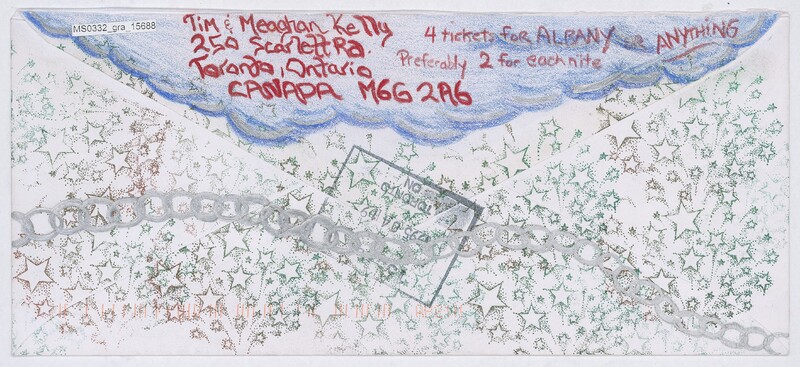 MS0332_gra_15688
Tim & Meaghan Kelly
250 Scarlett Rd.
Toronto, Ontario
CANADA M6G 2A6
4 tickets for ALBANY or ANYTHING
Preferably 2 for each nite
TORONTO